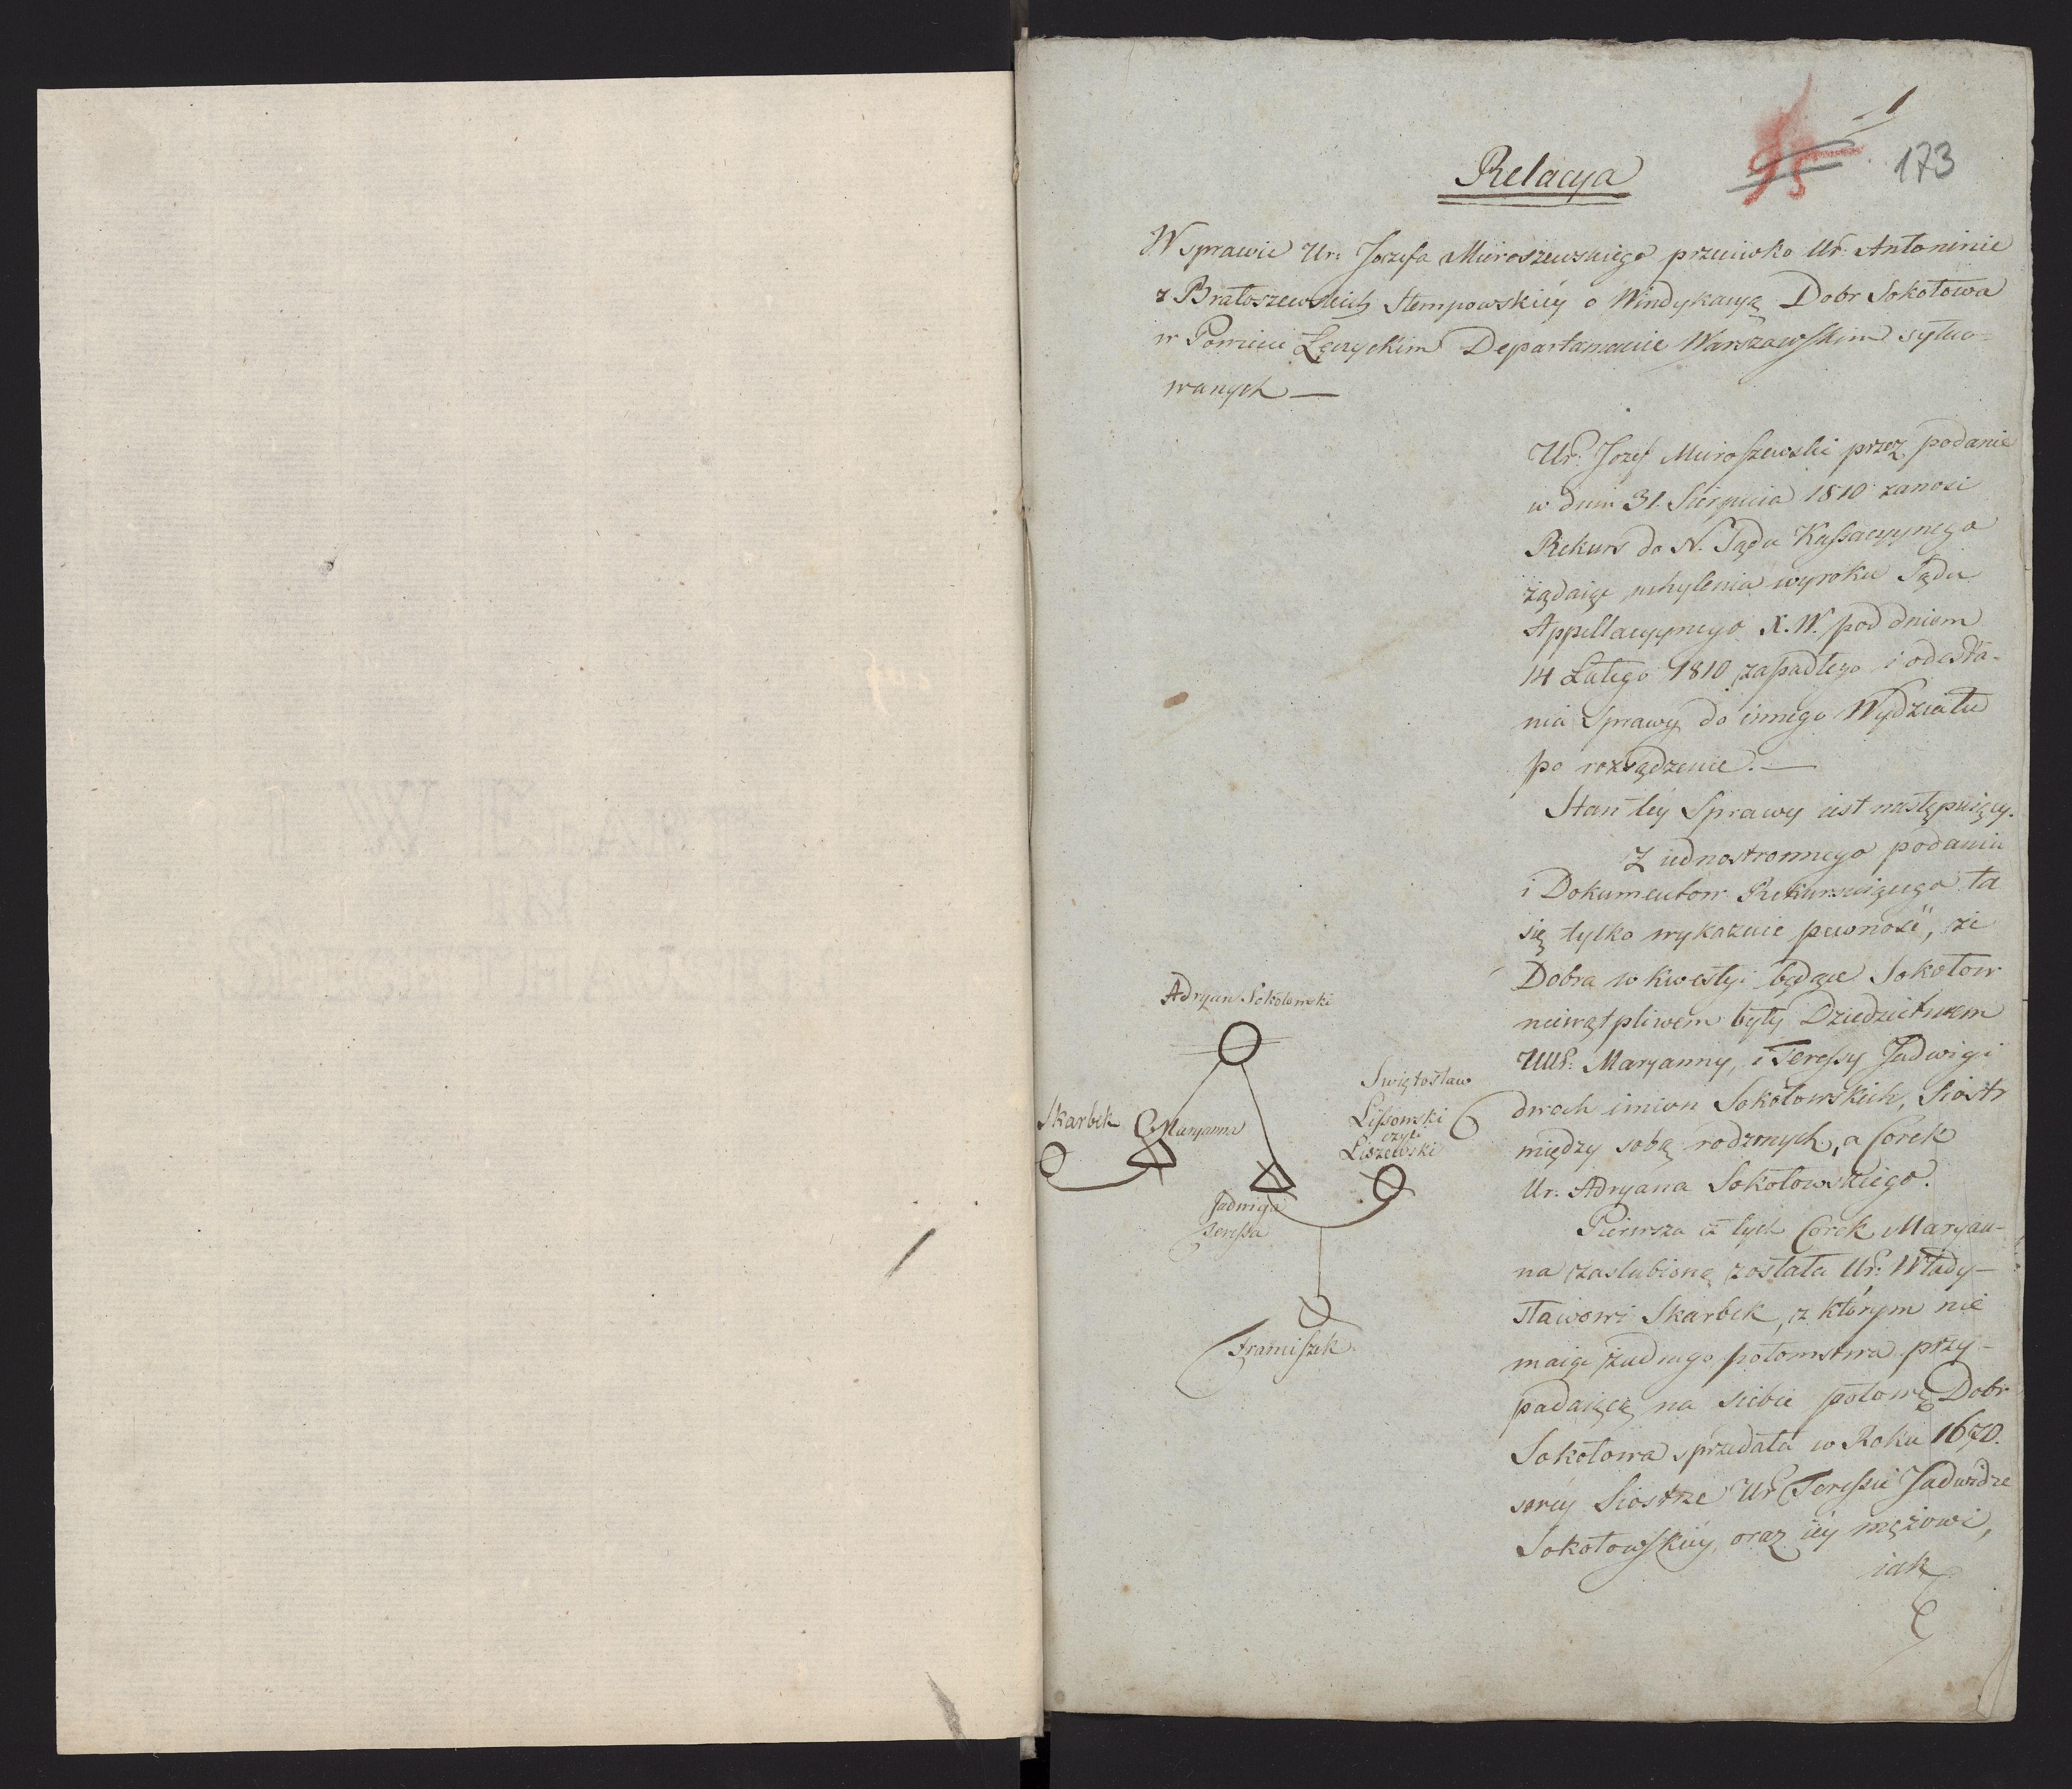 1
95
173
Relacya
W sprawie Ur: Jozefa Mieroszewskiego przeciwko Ur: Antoninie
z Bratoszewskich Stempowskiey o Windykacyą Dobr Sokołowa
w Powiecie Łęczyckim Departamencie Warszawskim sytuo-
wanych —
Ur: Jozef Mieroszewski przez podanie
w dniu 31. Sierpnia 1810 zanosi
Rekurs do N. Sądu Kassacyynego
żądaiąc uchylenia wyroku Sądu
Appellacyynego X. W. pod dniem
14 Lutego 1810 zapadłego i odesła-
nia Sprawy do innego Wydziału
po rozsądzenie. —
Stan tey Sprawy iest następuiący.
Z iednostronnego podania
i Dokumentow Rekurruiącego ta
się tylko wykazuie pewność, że
Dobra w kwestyi będące Sokołow
niewątpliwem były Dziedzictwem
UUr: Maryanny, i Teressy Jadwigi
dwoch imion Sokołowskich, Siostr
między sobą rodzonych, a Corek
Ur. Adryana Sokołowskiego.
Pierwsza z tych Corek Maryan-
na zaslubioną została Ur: Włady-
sławowi Skarbek, z którym nie
maiąc żadnego potomstwa przy-
padaiącą na siebie połowę Dobr
Sokołowa sprzedała w Roku 1670.
swey Siostrze Ur Teressie Jadwidze
Sokołowskiey, oraz iey mężowi,
iak
Adryan Sokołowski
Skarbek
Maryanna
Swiętosław
Lissowski
czyli
Liszewski
Jadwiga
Teressa
Franciszek